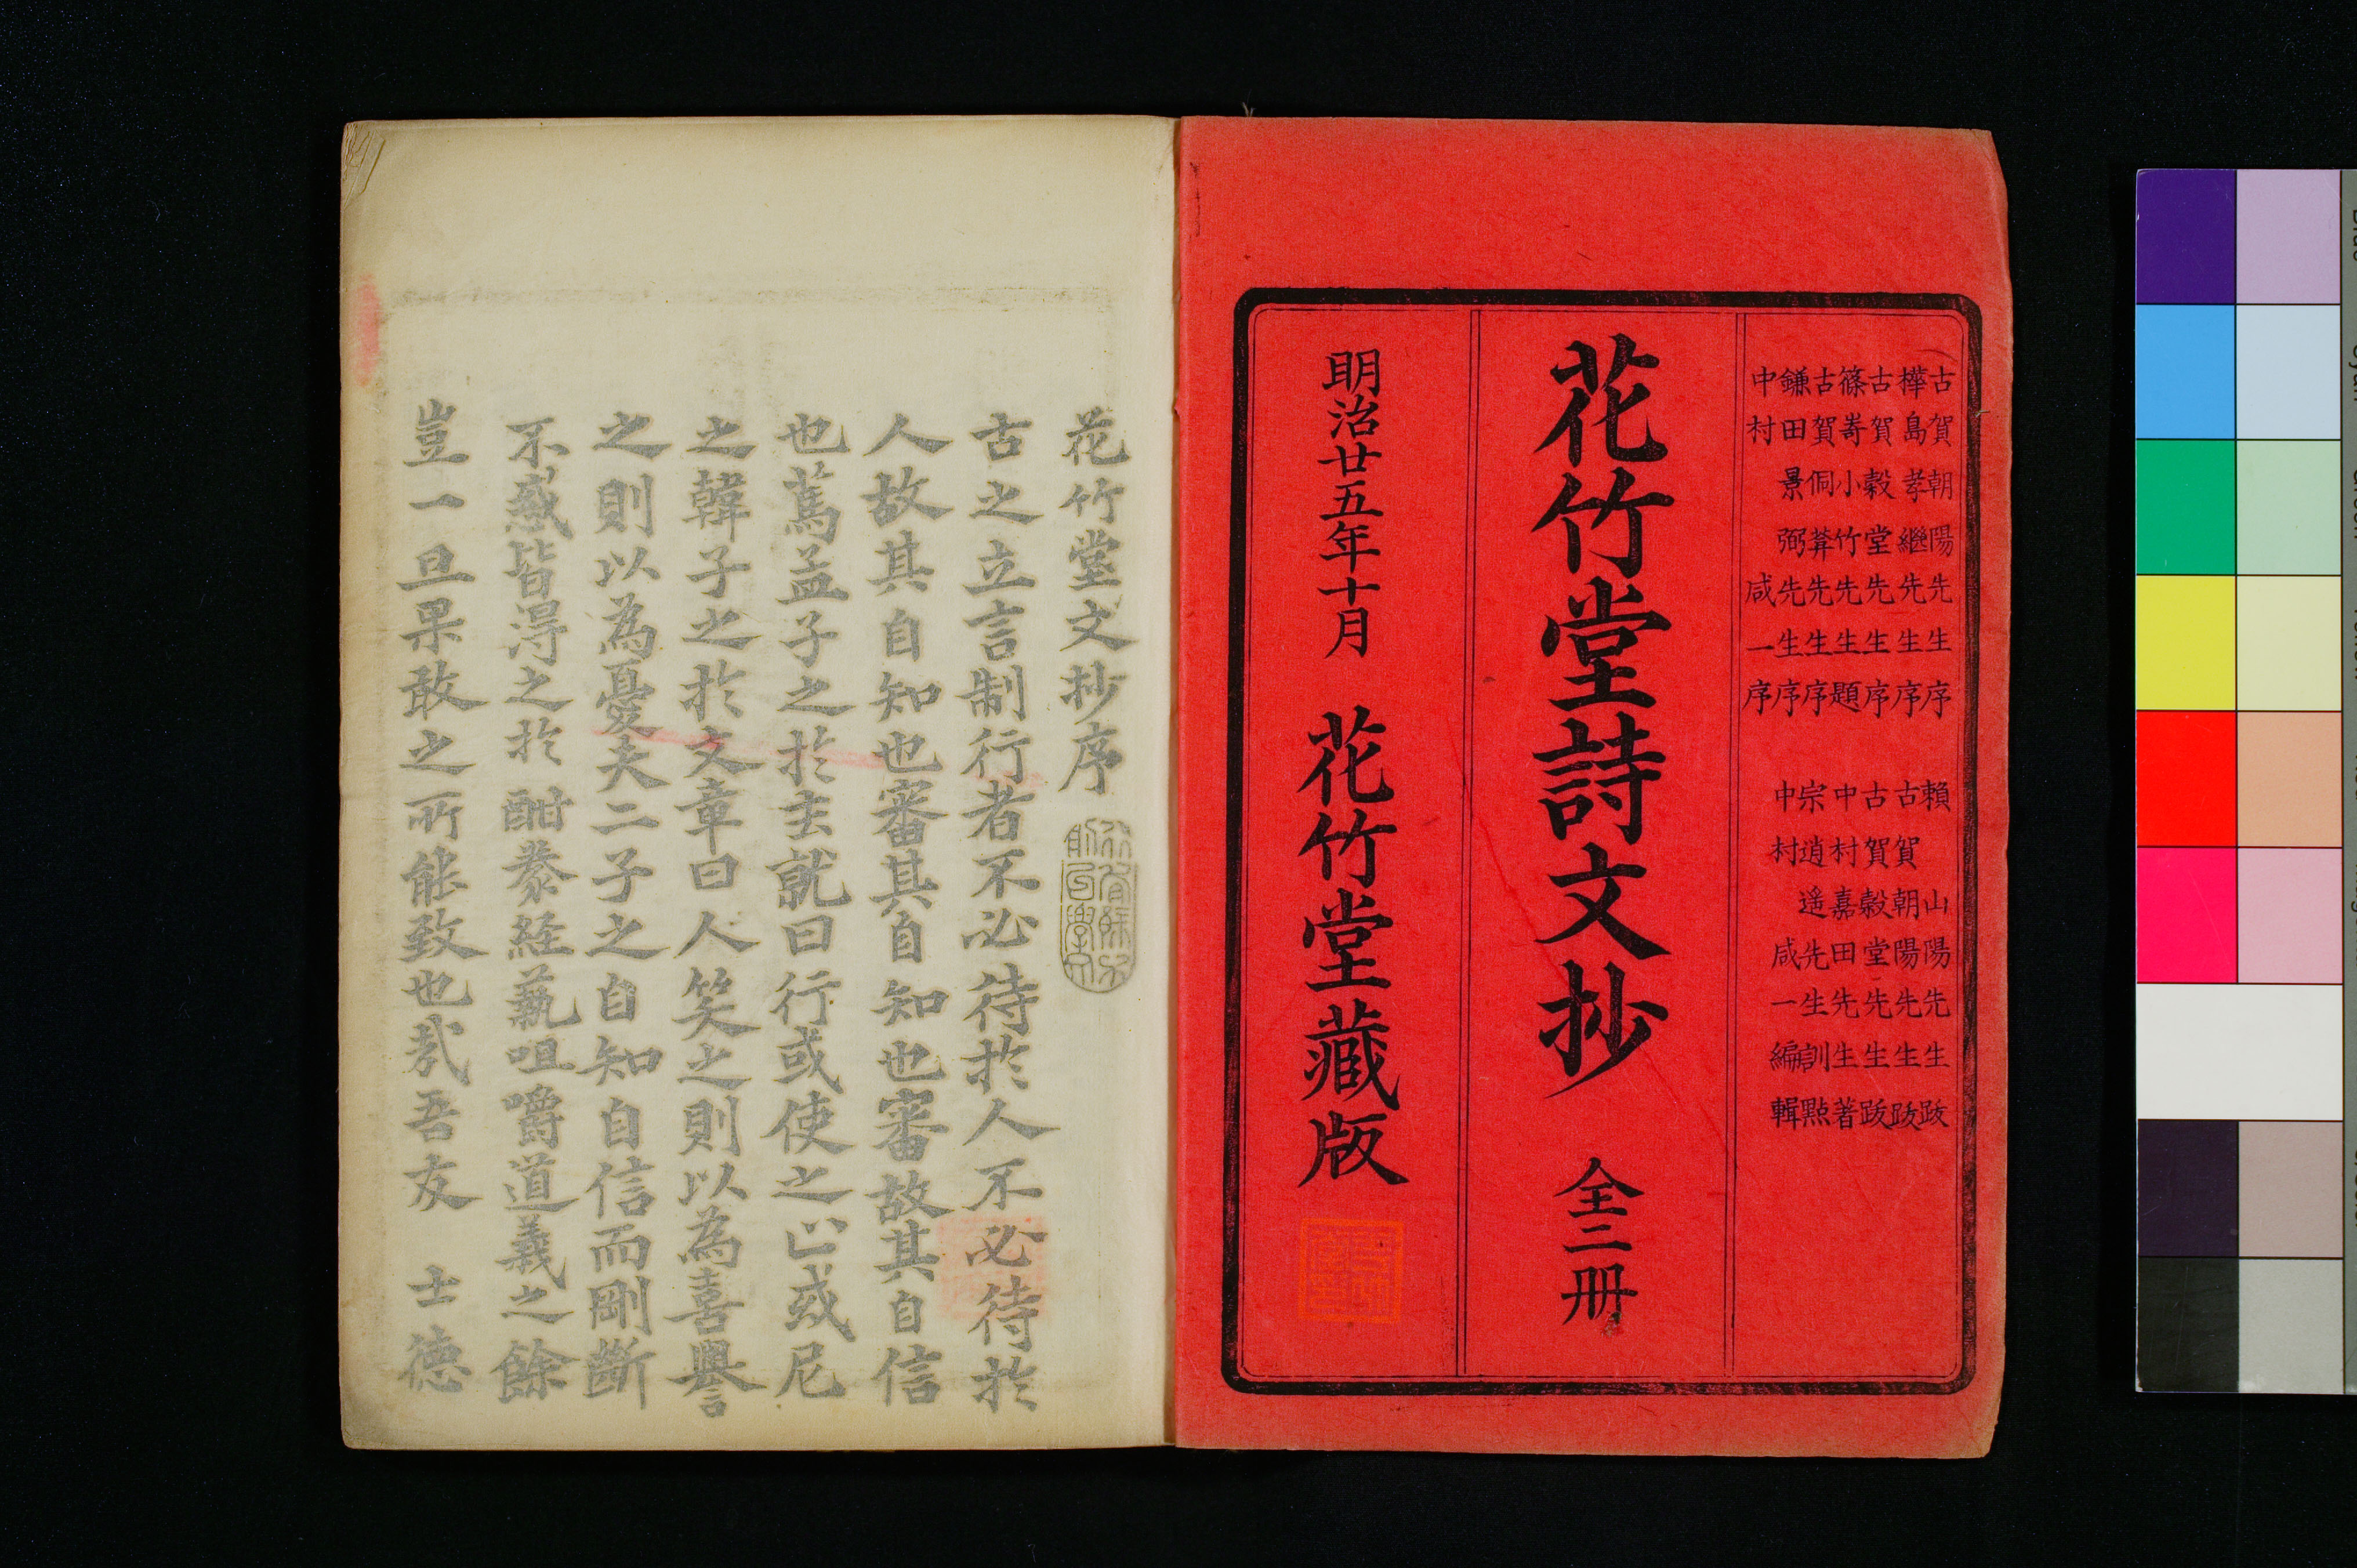 古賀朝陽先生序
樺島孝繼先生序
古賀穀堂先生序
篠嵜小竹先生題
古賀侗葊先生序
鎌田景弼先生序
中村咸一序
賴山陽先生跋
古賀朝陽先生跋
古賀穀堂先生跋
中村嘉田先生著
宗逍遙先生訓點
中村咸一編輯
花竹堂詩文抄 全二冊
明治廿五年十月 花竹堂藏版
花竹堂文抄序
古之立言制行者不必待於人不必待於
人故其自知也審其自知也審故其自信
也篤孟子之於去就曰行或使之止或尼
之韓子之於文章曰人笑之則以為喜譽
之則以為憂夫二子之自知自信而剛斷
不惑皆得之於酣豢経藝咀嚼道義之餘
豈一旦果敢之所能致也哉吾友 士德